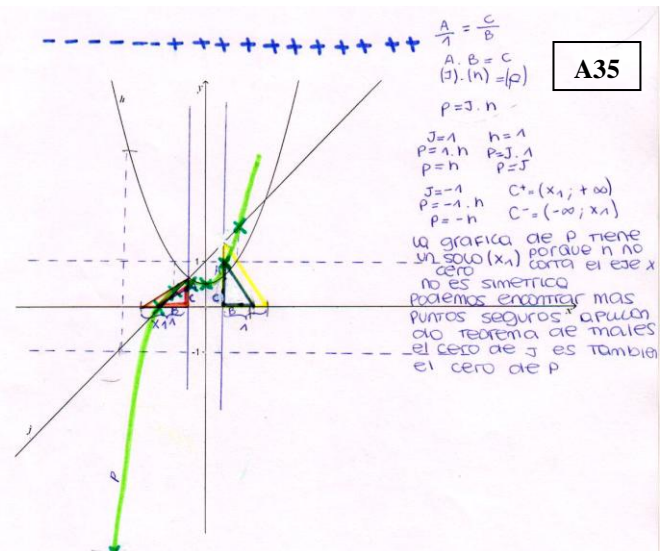 - - - - - - - - + + + + + + + + + + +
A/1 = C/B
A35
A . B = C
(J) . (h) = (p)
P = J . h
J=1 h=1
P=1.h P=J.1
P=h P=J
J=-1 C⁺=(x1 ; +∞)
P=-1.h C⁻=(-∞ ; x1)
P=-h
la grafica de P tiene
un solo (x1) porque h no
cero corta el eje x
no es simetrica
podemos encontrar mas
puntos seguros aplican
do teorema de thales
el cero de J es tambien
el cero de P
y
h
1
A
C
C
B
B
x1
1
1
x
-1
j
P